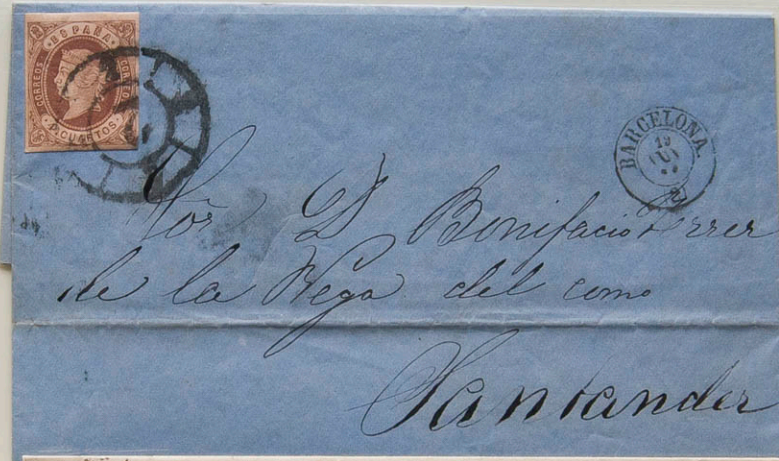 ESPAÑA
CORREOS
CORREOS
4 CUARTOS
BARCELONA
19
JUN
Sõr D Bonifacio Ferrer
de la Vega del como
Santander